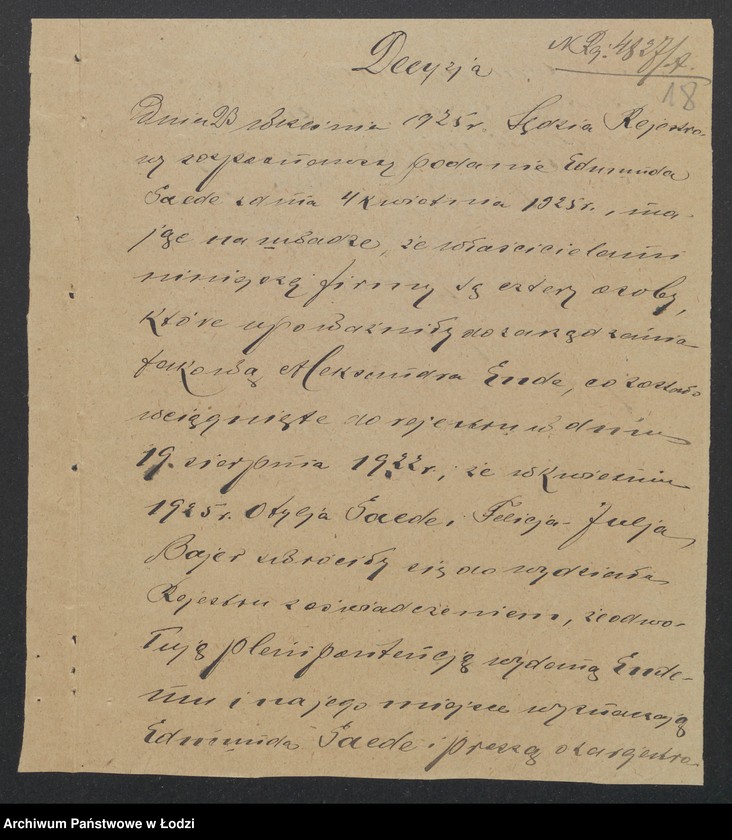 Decyzja
N Rej. 4827/A.
18
Dnia 23 września 1925 r. Sędzia Rejestro-
wy rozpoznawszy podanie Edmunda
Gaede z dnia 4 kwietnia 1925 r., ma-
jąc na uwadze, że właścicielami
niniejszej firmy są cztery osoby,
które upoważniły do zarządzania
takową Aleksandra Ende, co zostało
wciągnięte do rejestru w dniu
19 sierpnia 1922 r.; że w kwietniu
1925 r. Otylja Gaede i Felicja-Julja
Bajer zwróciły się do wydziału
Rejestru z oświadczeniem, że odwo-
łują plenipotencję wydaną Ende-
mu i na jego miejsce wyznaczają
Edmunda Gaede i proszą o zarejestro-
Archiwum Państwowe w Łodzi